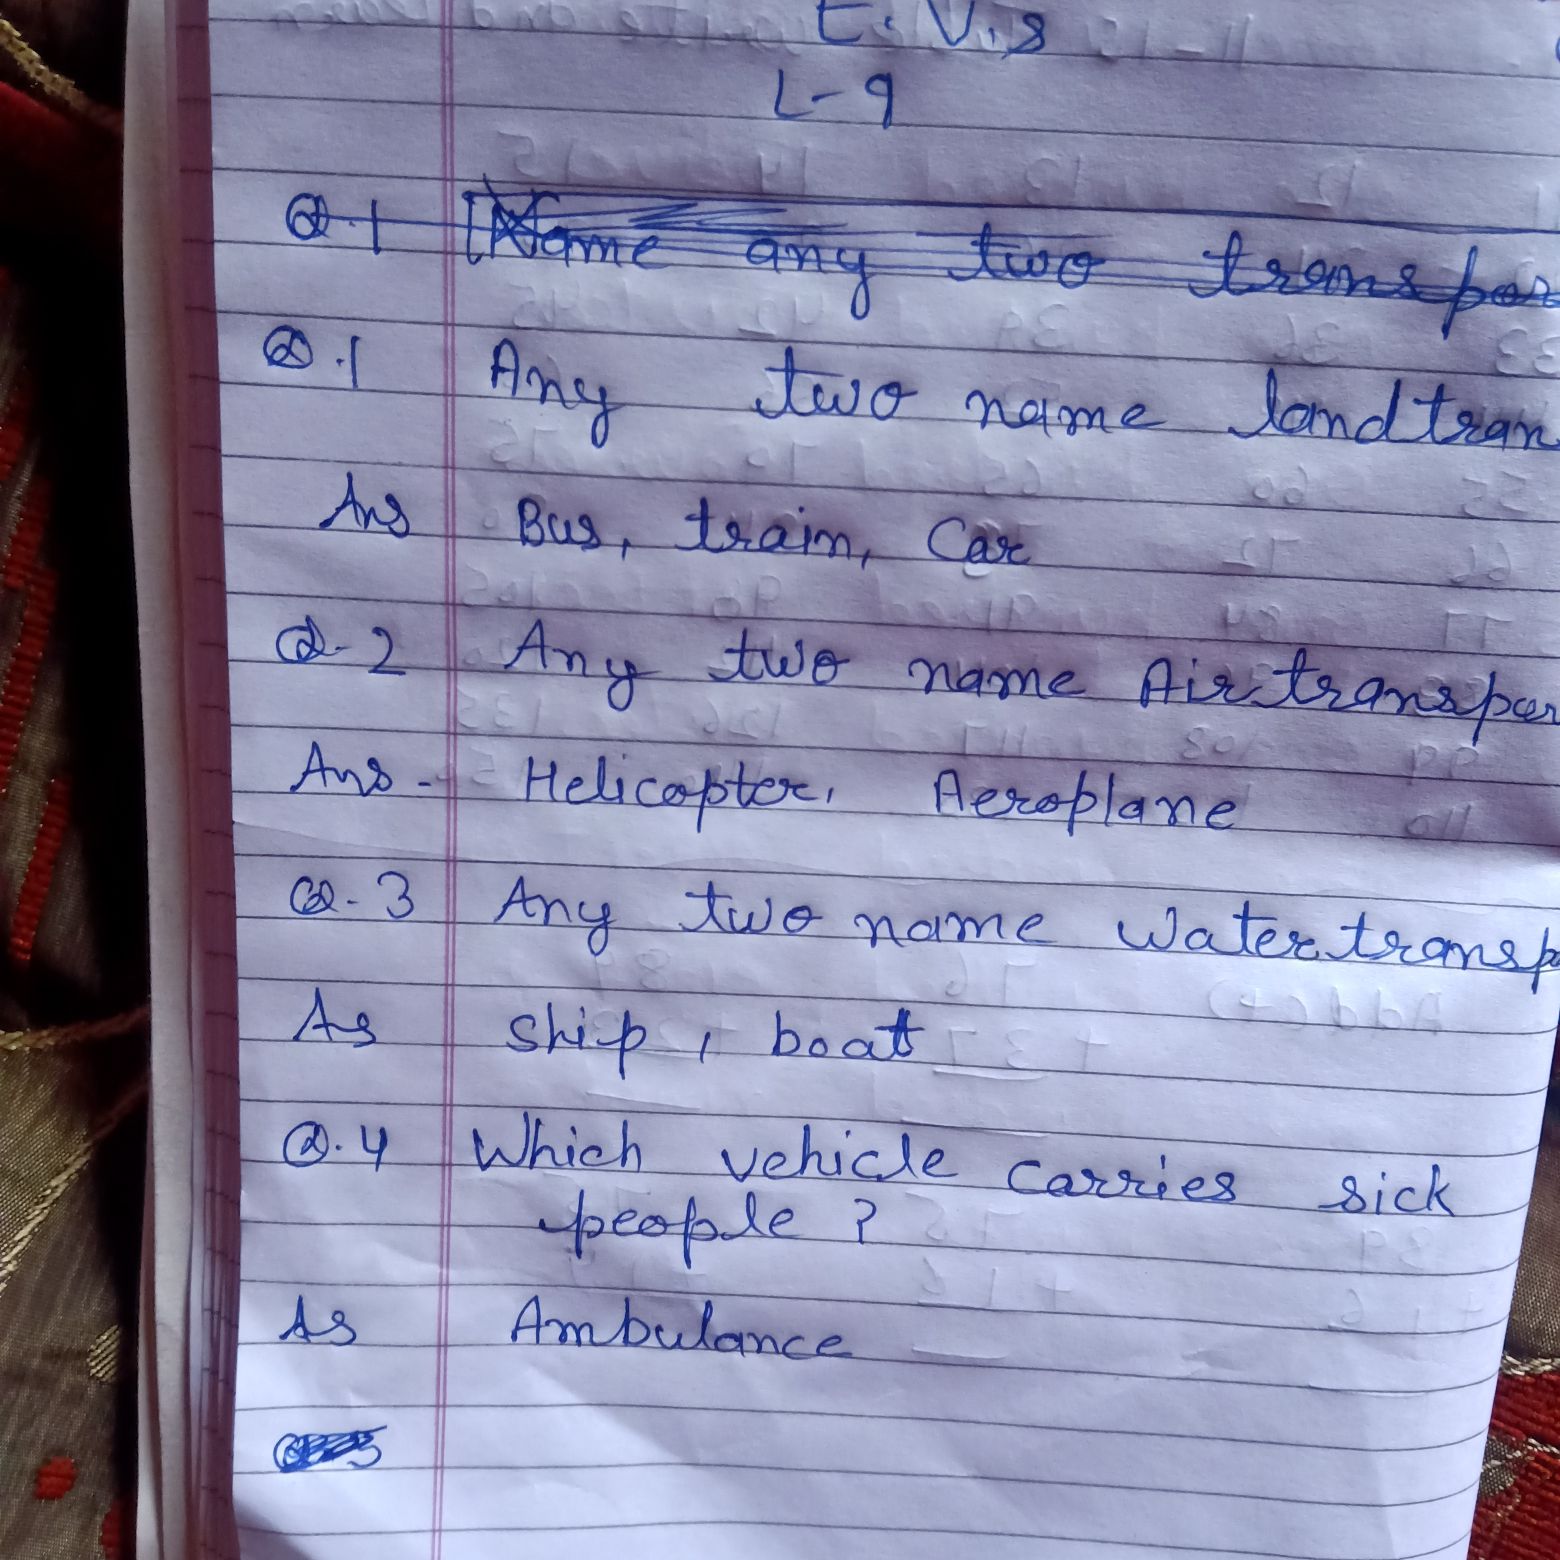 E.V.S
L-9
Q.1 Name any two transpor
Q.1 Any two name landtran
Ans Bus, train, Car
Q.2 Any two name Air transpor
Ans - Helicopter, Aeroplane
Q.3 Any two name Water transpo
As Ship, boat
Q.4 Which vehicle carries sick
people ?
As Ambulance